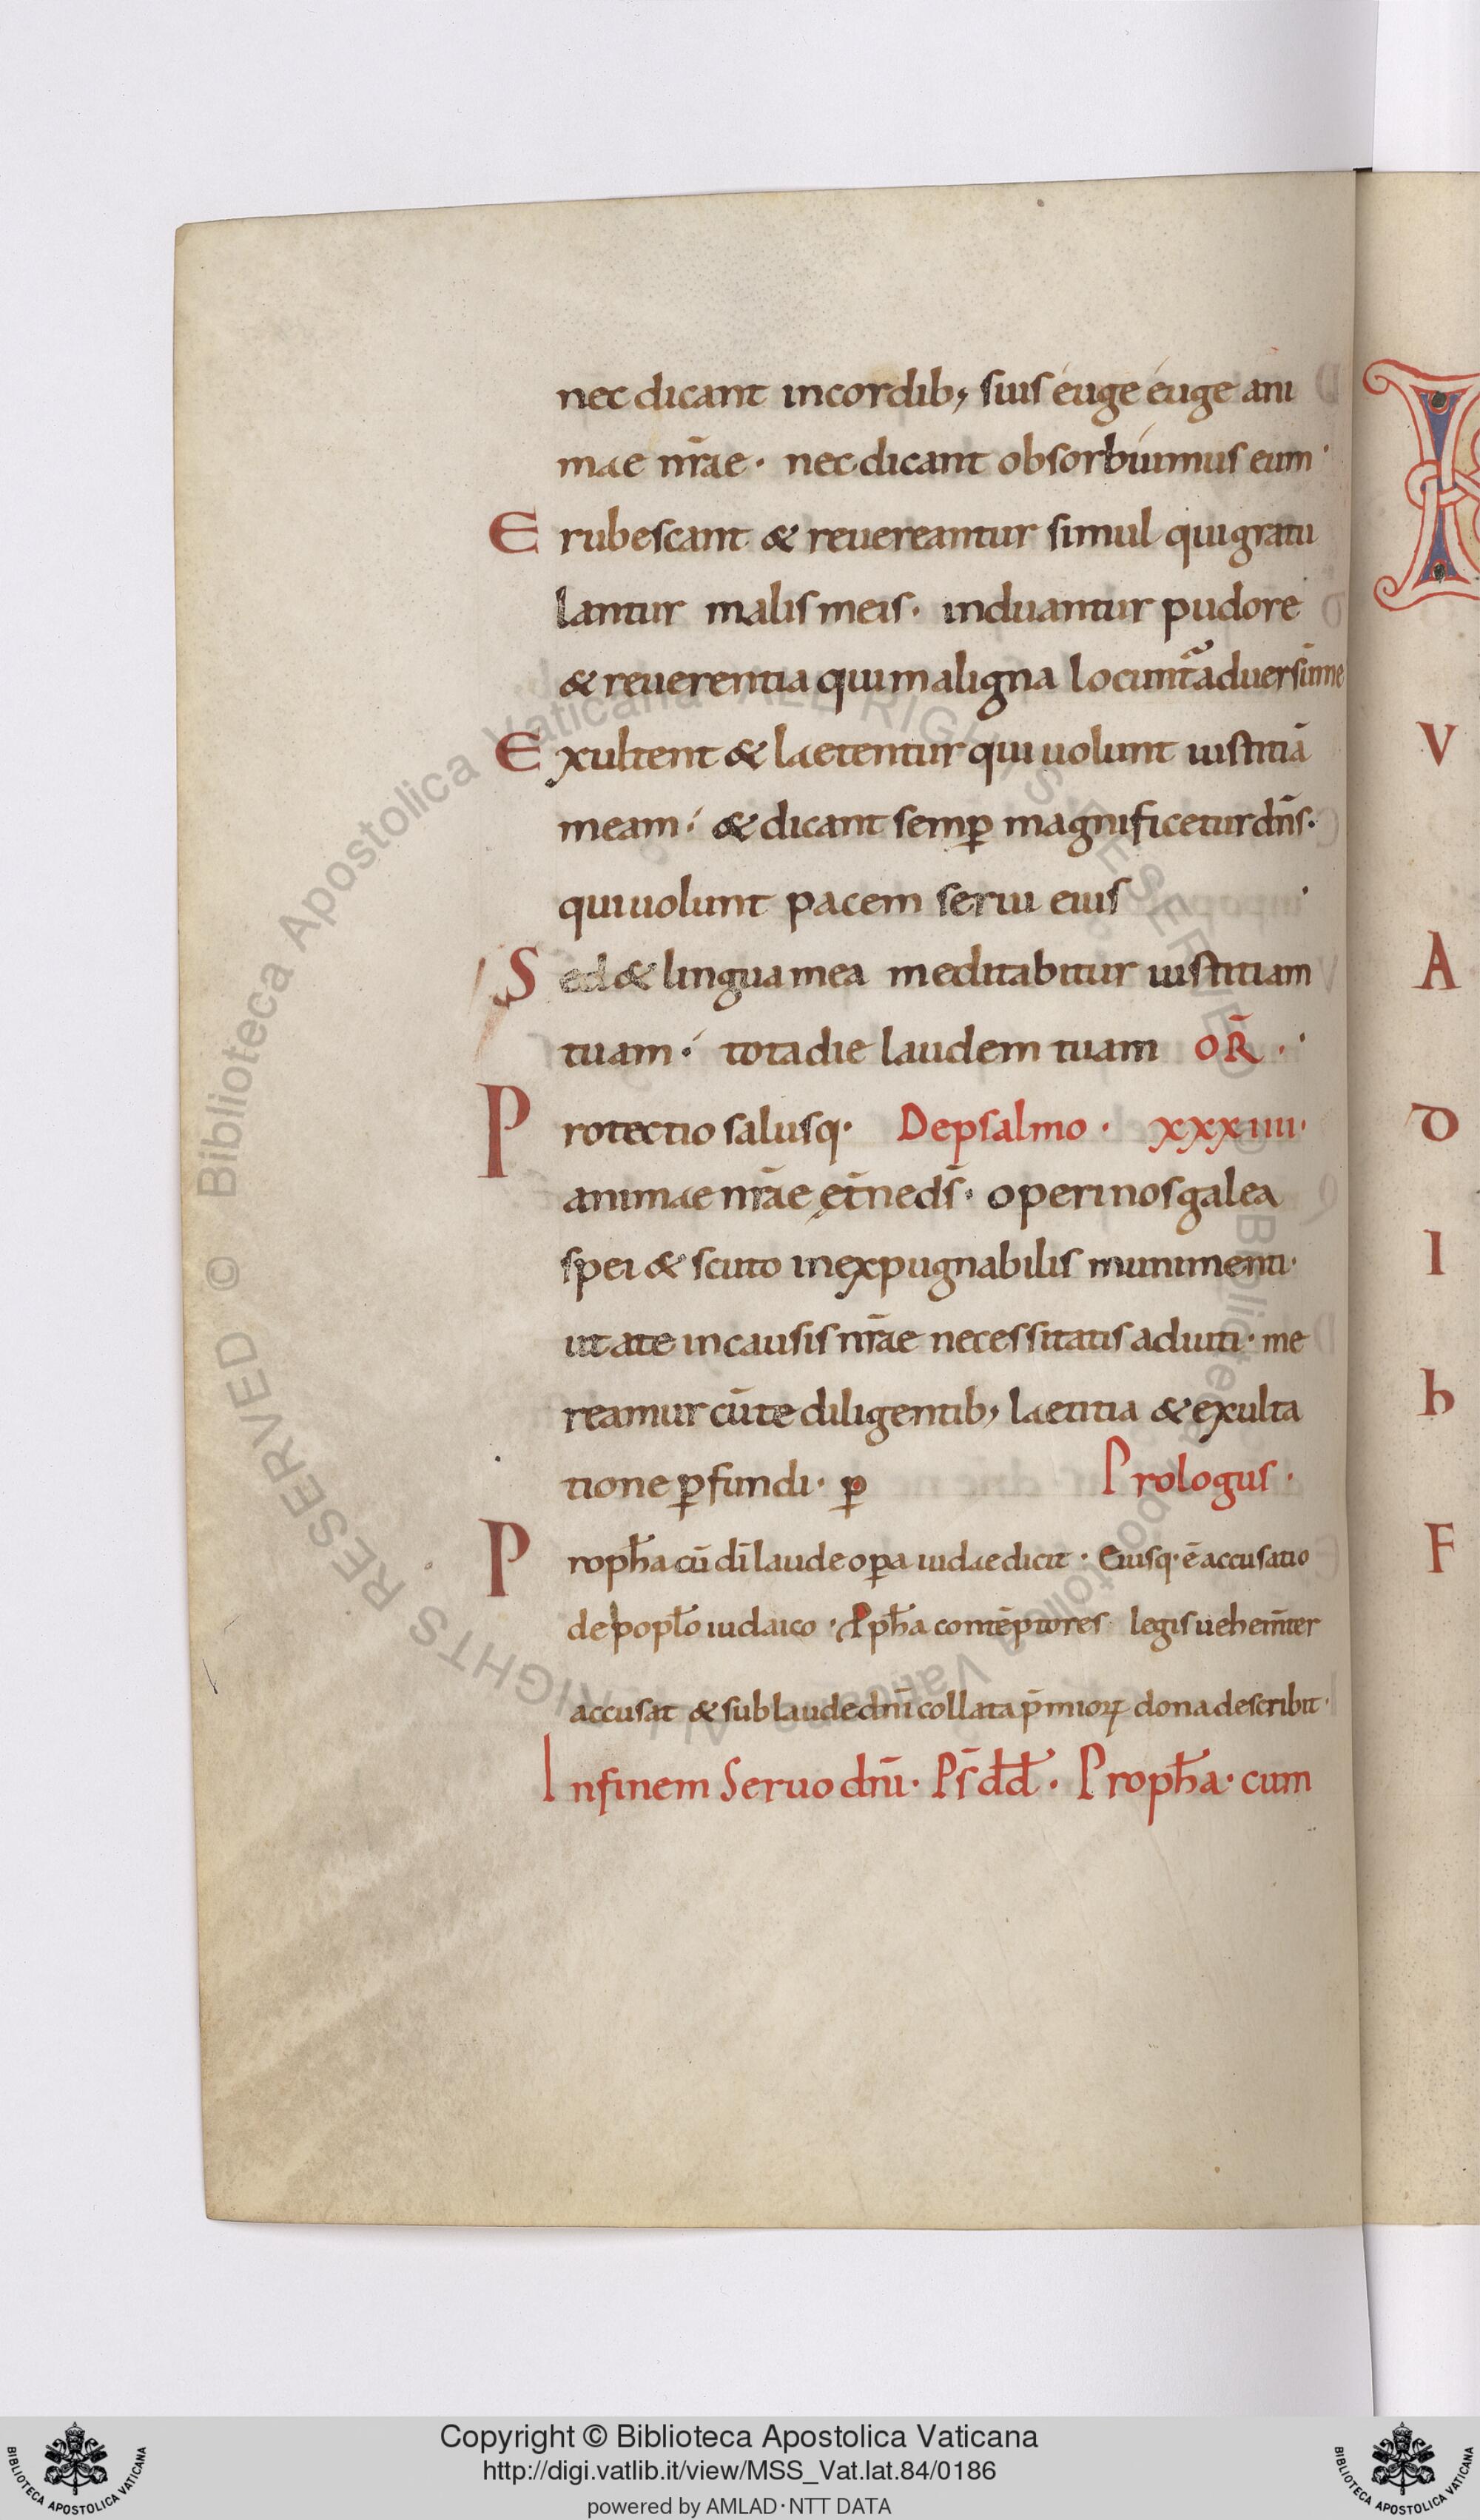 nec dicant incordib; suis éuge éuge ani
mae nr̄ae · nec dicant obsorbúimus eum ·
E rubescant & reuereantur simul qui gratu
lantur malis meis · induantur pudore
& reuerentia qui maligna locunt̄ aduersū me
E xultent & laetentur qui uolunt iustitiā
meam · & dicant semꝑ magnificetur dn̄s ·
qui uolunt pacem serui eius ·
S ed & lingua mea meditabitur iustitiam
tuam · tota die laudem tuam OR̄ ·
P rotectio salusq· De psalmo · xxxiiii·
animae nr̄ae ęt̄ne ds̄ · operi nos galea
spei & scuto inexpugnabilis munimenti·
ut ate in causis nr̄ae necessitatis adiuti · me
reamur cū te diligentib; laetitia & exulta
tione ꝑfundi · ꝑ Prologus ·
P roph̄a cū dī laude oꝑa iudae dicit · Eiusq· ē accusatio
de popl̄o iudaico · Pph̄a contēptores legis uehem̄ter
accusat & sub laude dn̄i collata p̄mioꝝ dona describit ·
In finem Seruo dn̄i · Ps̄ dd̄ · Proph̄a · cum
V
A
D
I
h
F
© Biblioteca Apostolica Vaticana ALL RIGHTS RESERVED
Copyright © Biblioteca Apostolica Vaticana
http://digi.vatlib.it/view/MSS_Vat.lat.84/0186
powered by AMLAD·NTT DATA
BIBLIOTECA APOSTOLICA VATICANA
BIBLIOTECA APOSTOLICA VATICANA